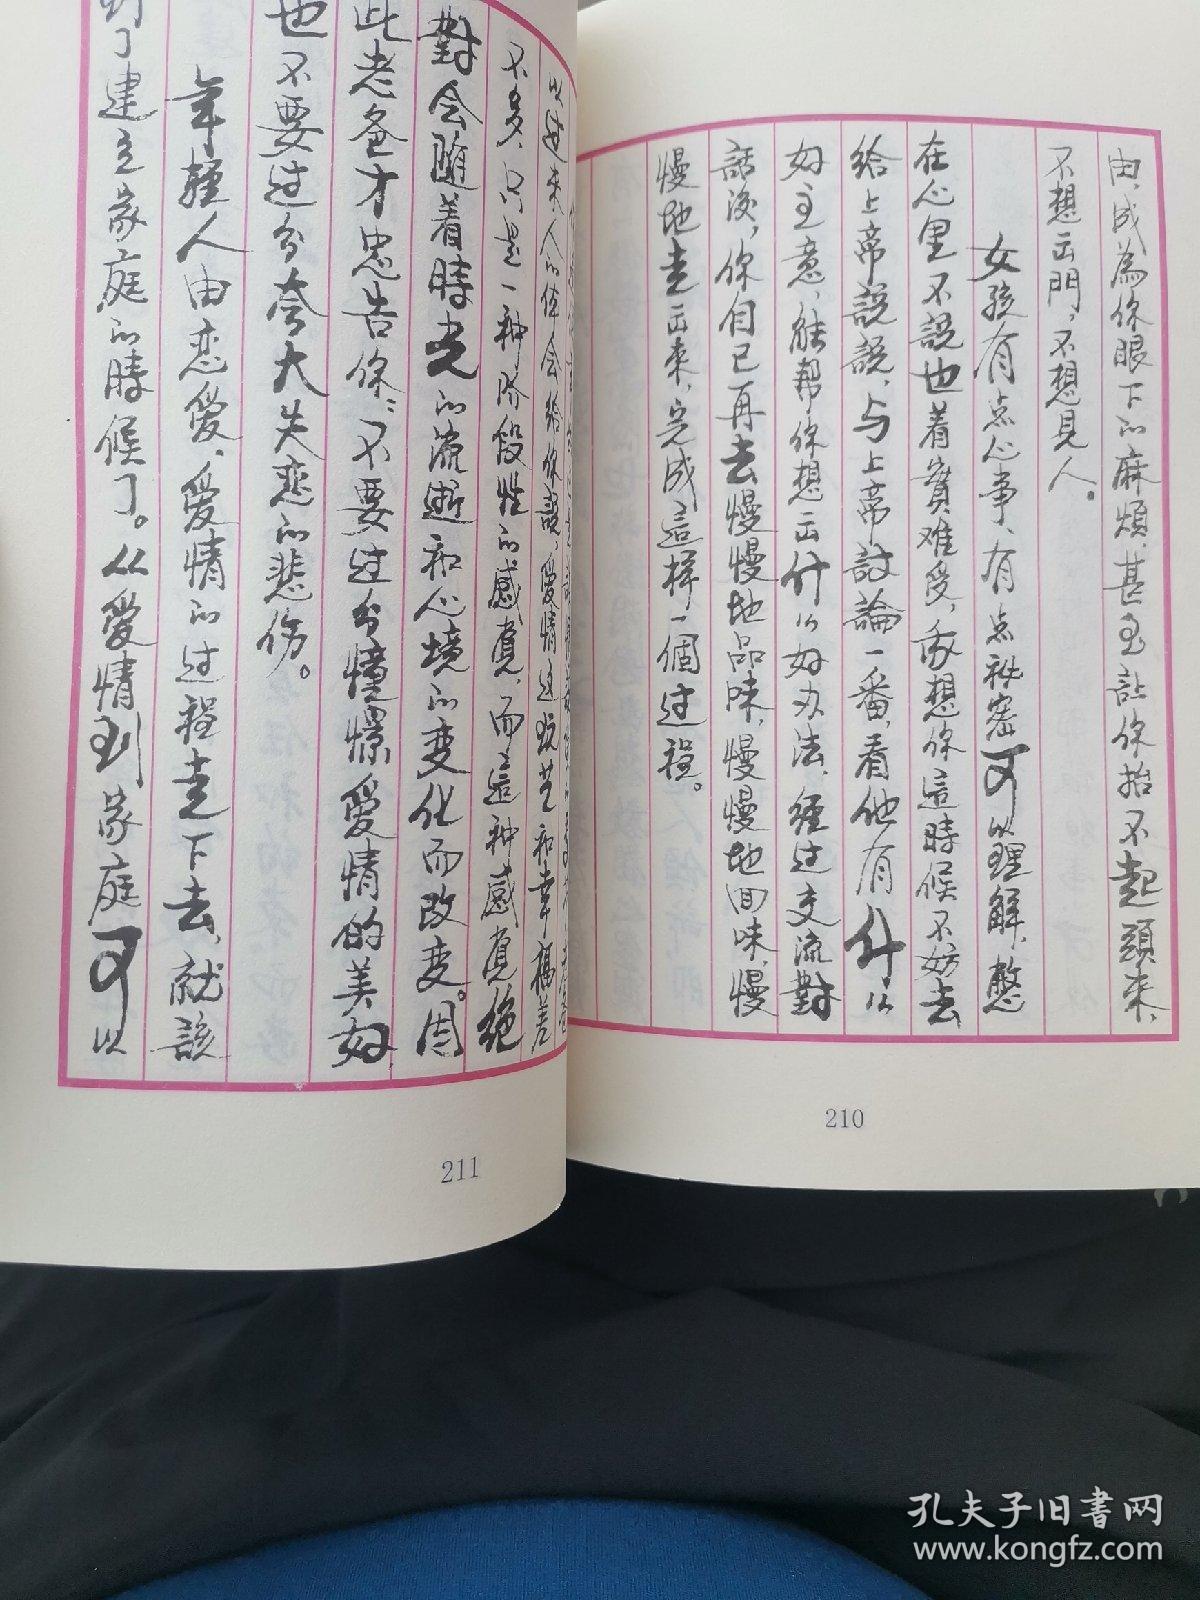 由，成為你眼下的麻煩，甚至让你抬不起頭来，
不想出門，不想見人。
女孩有点心事、有点秘密可以理解，憋
在心里不説也着實难受，我想你這時候不妨去
給上帝説説，与上帝討論一番，看他有什么
好主意，能帮你想出什么好办法，經过交流對
話後，你自己再去慢慢地品味，慢慢地回味，慢
慢地走出来，完成這樣一個过程。
210
以过来人的
不多，只是一种阶段性的感覚，而這种感覚绝
對会随着時光的流逝和心境的变化而改变。因
此老爸才忠告你：不要过分憧憬愛情的美好
也不要过分夸大失恋的悲伤。
年輕人由恋愛、愛情的过程走下去，就該
到了建立家庭的時候了。从愛情到家庭可以
211
孔夫子旧书网
www.kongfz.com